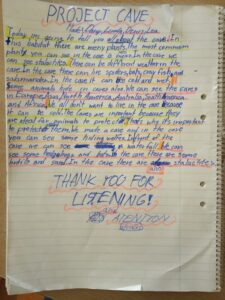 PROJECT CAVE
Today im going to tell you all about the cave. In
this habitat there are many plants, the most common
plant you can see in the cave is moss. In the cave we
can see stalactites. There can be different weather in the
cave. In the cave there can be spiders, bats, cray fish and
salamander. In the caves it can be cold and wet.
Some animals live in caves alone. We can see the caves
in Europe, Asia, North America, Australia, South America
and Africa. We all don't want to live in the cave because
it can be cold. The caves are important because they
are ideal for animals to protect. That's why it's important
to protect them. We make a cave and in the cave
you can see some hiding water. Infront of the
cave we can see a waterfall. We can
see some hedgehogs and bats. In the cave there are some
turtle and sand. In the cave there are stalactites.
THANK YOU FOR
LISTENING!
ATENCION